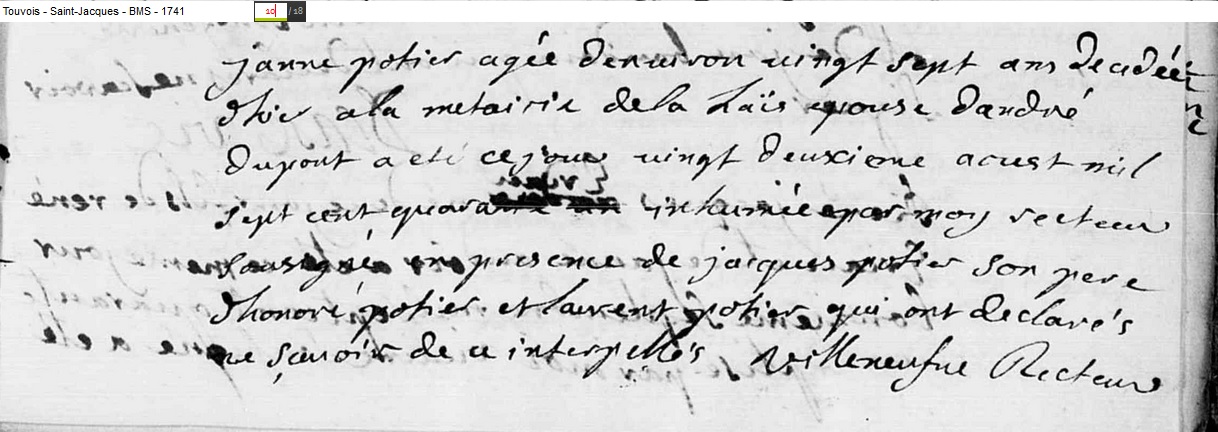 Touvois - Saint-Jacques - BMS - 1741 10 / 18
janne potier agée denviron vingt sept ans decedée
d'hier a la metairie de la haïs epouse dandré
dupont a eté ce jour vingt deuxieme aoust mil
sept cent quarante un inhumée par moy recteur
sousigné en presence de jacques potier son pere
d'honoré potier et laurent potier qui ont declarés
ne sçavoir de ce interpellés Villeneufve Recteur